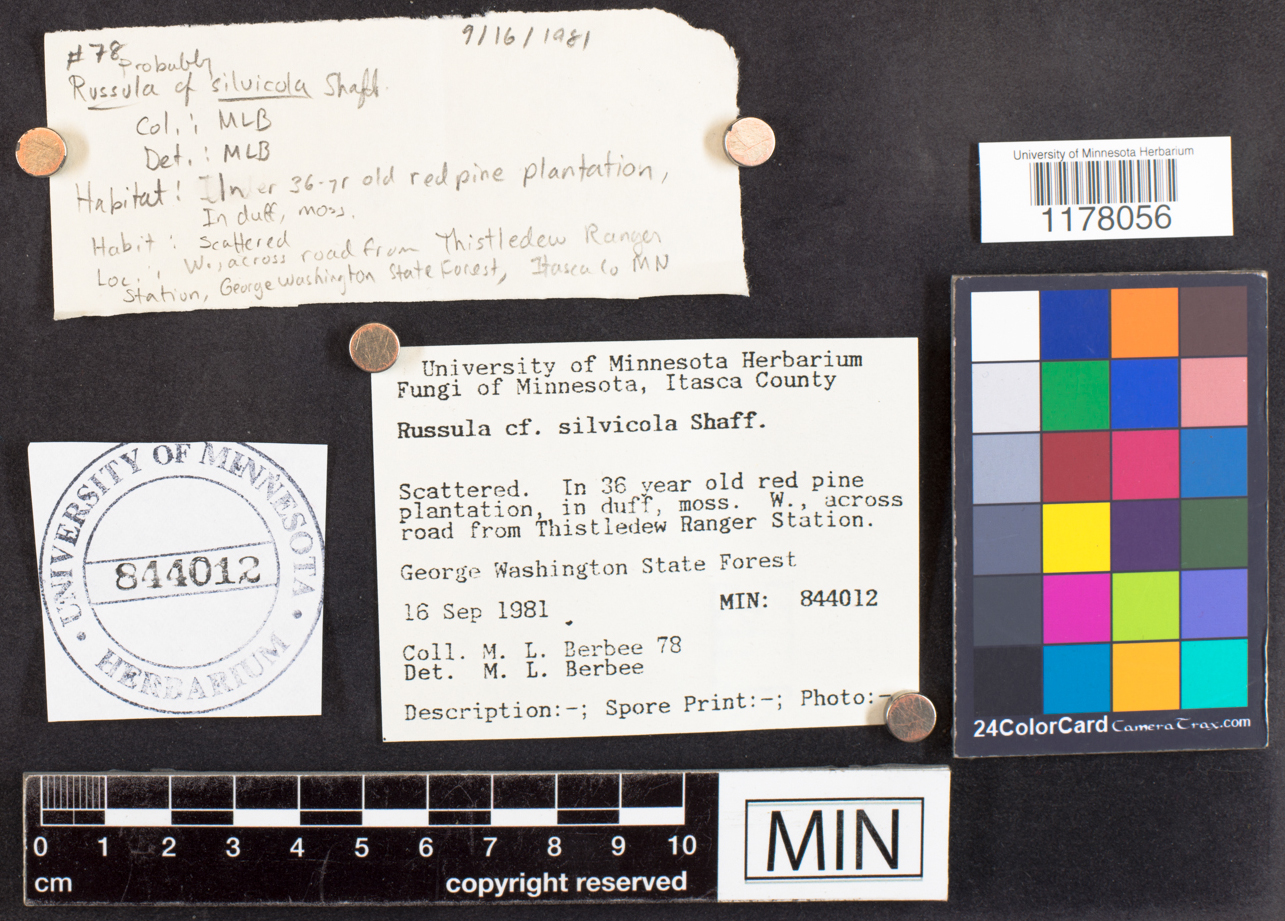 #78 9/16/1981
probably
Russula cf silvicola Shaff.
Col.: MLB
Det.: MLB
Habitat: In 36-yr old red pine plantation,
In duff, moss.
Habit: Scattered
Loc.: W., across road from Thistledew Ranger
Station, George Washington State Forest, Itasca Co MN
University of Minnesota Herbarium
1178056
University of Minnesota Herbarium
Fungi of Minnesota, Itasca County
Russula cf. silvicola Shaff.
Scattered. In 36 year old red pine
plantation, in duff, moss. W., across
road from Thistledew Ranger Station.
George Washington State Forest
16 Sep 1981
MIN: 844012
Coll. M. L. Berbee 78
Det. M. L. Berbee
Description:-; Spore Print:-; Photo:-
UNIVERSITY OF MINNESOTA
844012
• HERBARIUM •
24ColorCard CameraTrax.com
0 1 2 3 4 5 6 7 8 9 10
cm copyright reserved
MIN